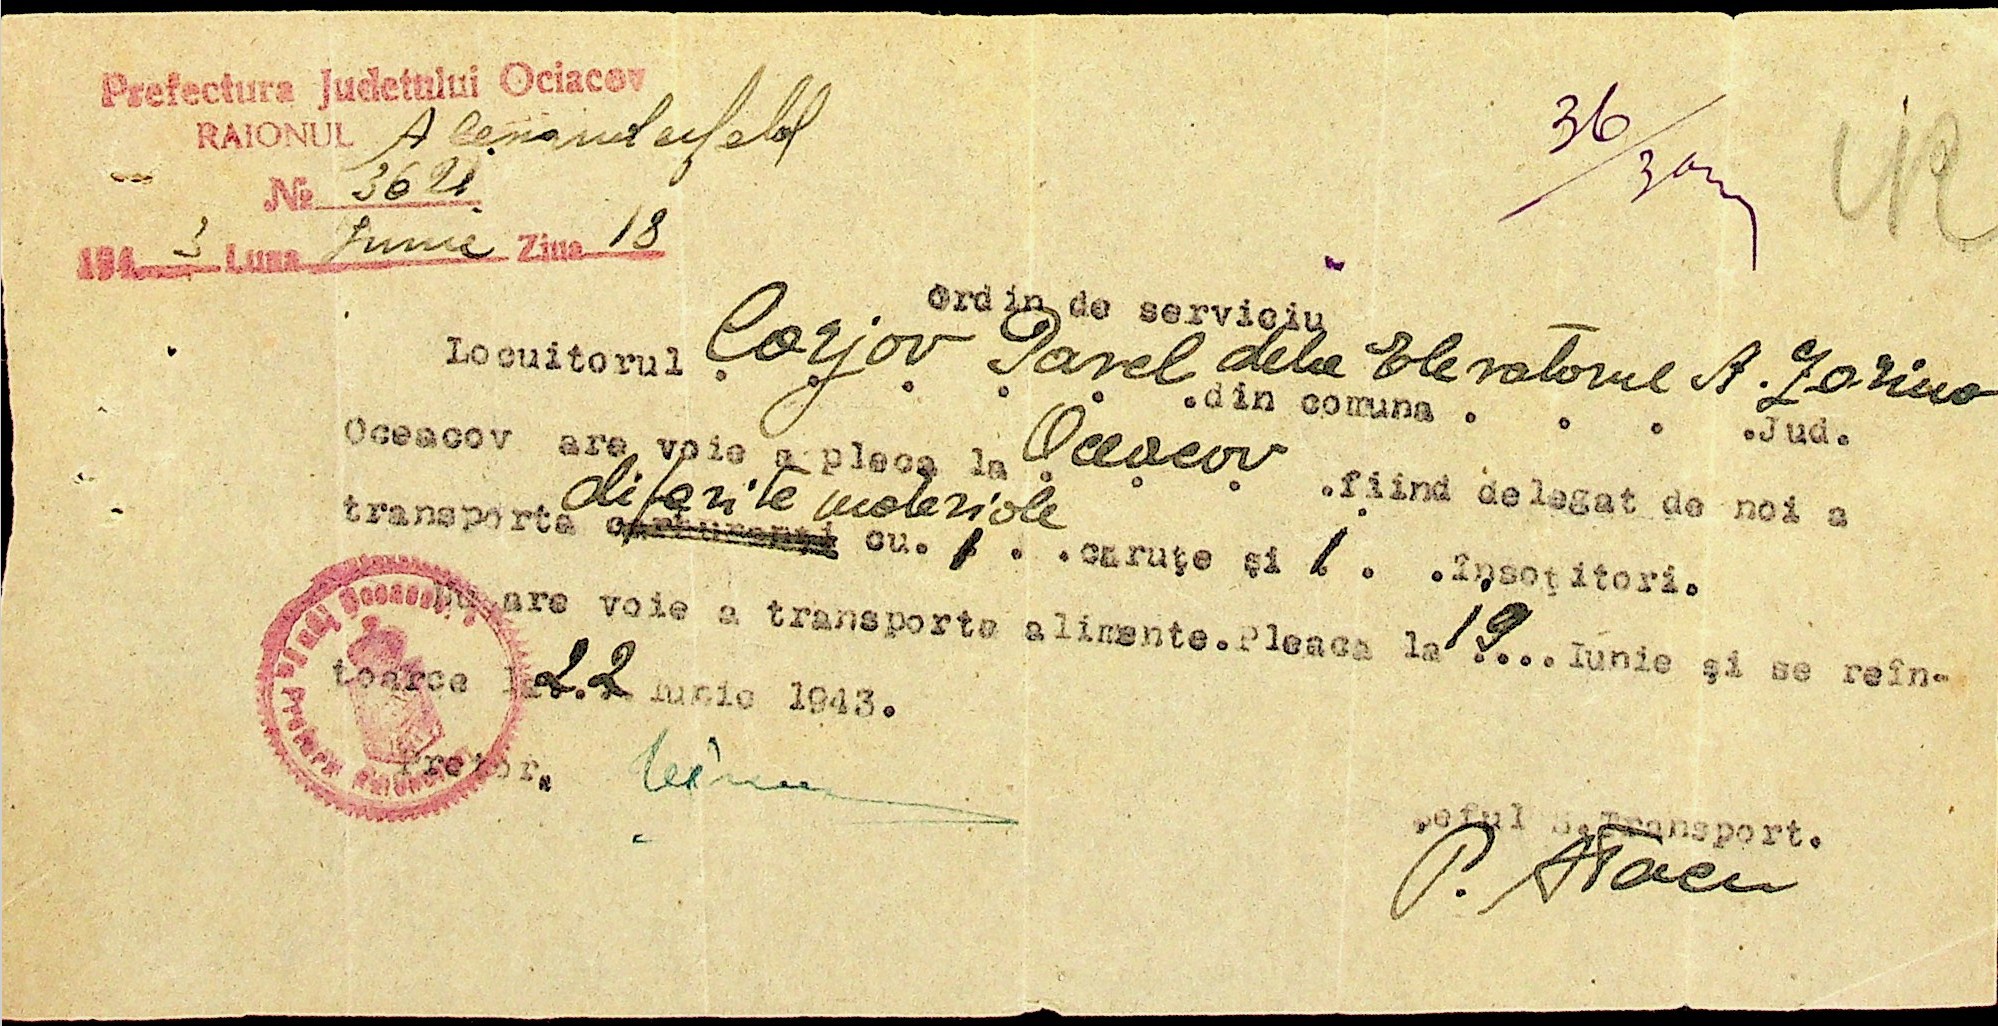 Prefectura Judetului Ociacov
RAIONUL Alexanderfeld
№ 3621
194 3 Luna Junie Ziua 18
36/30
Ordin de serviciu
Locuitorul Cozjov Pavel dela Elevatorul A. Zarino
. . . . . .din comuna . . . .Jud.
Oceacov are voie a pleca la Oceacov .fiind delegat de noi a
diferite materiale
transporta carburanți cu. 1 . .caruțe și 1. . .însoțitori.
Nu are voie a transporta alimente.Pleaca la 19.... Iunie și se reîn-
toarce la 22 Iunie 1943.
Pretor,
Șeful S.Transport.
P.